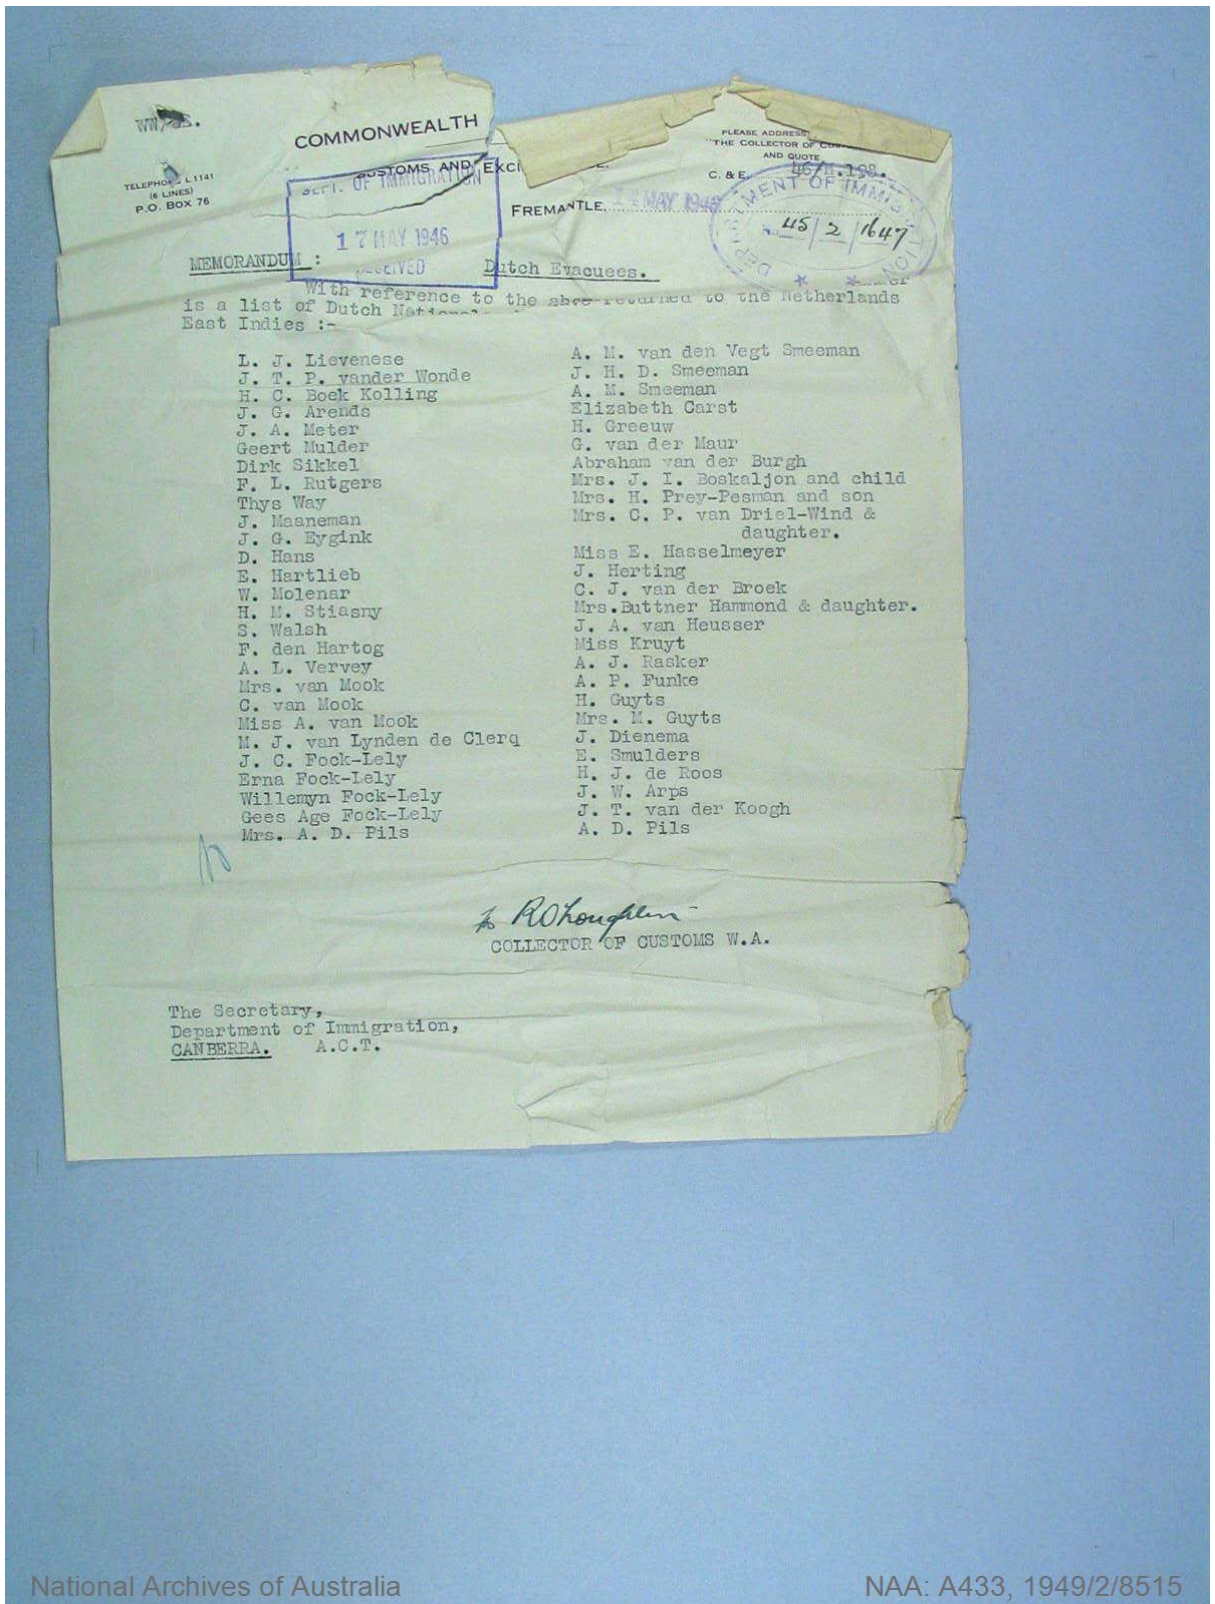 WW/
COMMONWEALTH
PLEASE ADDRESS
"THE COLLECTOR OF
AND QUOTE
C. & E. 46/
TELEPHONE L1141
(6 LINES)
P.O. BOX 76
CUSTOMS AND EXCI
DEPT. OF IMMIGRATION
17 MAY 1946
RECEIVED
FREMANTLE, MAY
DEPARTMENT OF IMMIGRATION
No. 45/2/1647
MEMORANDUM :
Dutch Evacuees.
With reference to the
is a list of Dutch returned to the Netherlands
East Indies :-
L. J. Lievenese
J. T. P. vander Wonde
H. C. Boek Kolling
J. G. Arends
J. A. Meter
Geert Mulder
Dirk Sikkel
F. L. Rutgers
Thys Way
J. Maaneman
J. G. Eygink
D. Hans
E. Hartlieb
W. Molenar
H. M. Stiasny
S. Walsh
F. den Hartog
A. L. Vervey
Mrs. van Mook
C. van Mook
Miss A. van Mook
M. J. van Lynden de Clerq
J. C. Fock-Lely
Erna Fock-Lely
Willemyn Fock-Lely
Gees Age Fock-Lely
Mrs. A. D. Pils
A. M. van den Vegt Smeeman
J. H. D. Smeeman
A. M. Smeeman
Elizabeth Carst
H. Greeuw
G. van der Maur
Abraham van der Burgh
Mrs. J. I. Boskaljon and child
Mrs. H. Prey-Pesman and son
Mrs. C. P. van Driel-Wind &
daughter.
Miss E. Hasselmeyer
J. Herting
C. J. van der Broek
Mrs.Buttner Hammond & daughter.
J. A. van Heusser
Miss Kruyt
A. J. Rasker
A. P. Funke
H. Guyts
Mrs. M. Guyts
J. Dienema
E. Smulders
H. J. de Roos
J. W. Arps
J. T. van der Koogh
A. D. Pils
R O'Loughlin
COLLECTOR OF CUSTOMS W.A.
The Secretary,
Department of Immigration,
CANBERRA. A.C.T.
National Archives of Australia
NAA: A433, 1949/2/8515